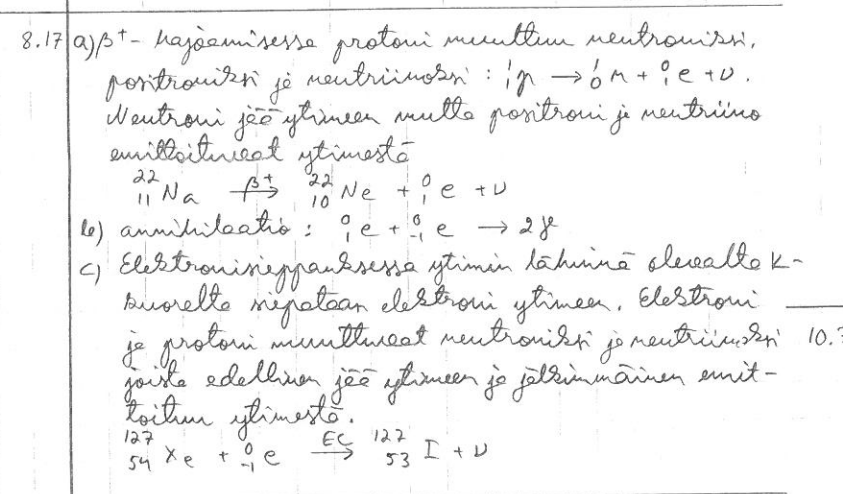 8.17 a) β⁺- hajoamisessa protoni muuttuu neutroniksi,
positroniksi ja neutriinoksi : ¹₁p → ¹₀n + ⁰₁e + ν.
Neutroni jää ytimeen mutta positroni ja neutriino
emittoituvat ytimestä
²²₁₁Na β⁺→ ²²₁₀Ne + ⁰₁e + ν
b) annihilaatio : ⁰₁e + ⁰₋₁e → 2γ
c) Elektronisieppauksessa ytimin lähinnä olevalta K-
kuorelta siepataan elektroni ytimeen. Elektroni
ja protoni muuttuvat neutroniksi ja neutriinoksi 10.
joista edellinen jää ytimeen ja jälkimmäinen emit-
toituu ytimestä.
¹²⁷₅₄Xe + ⁰₋₁e EC→ ¹²⁷₅₃I + ν